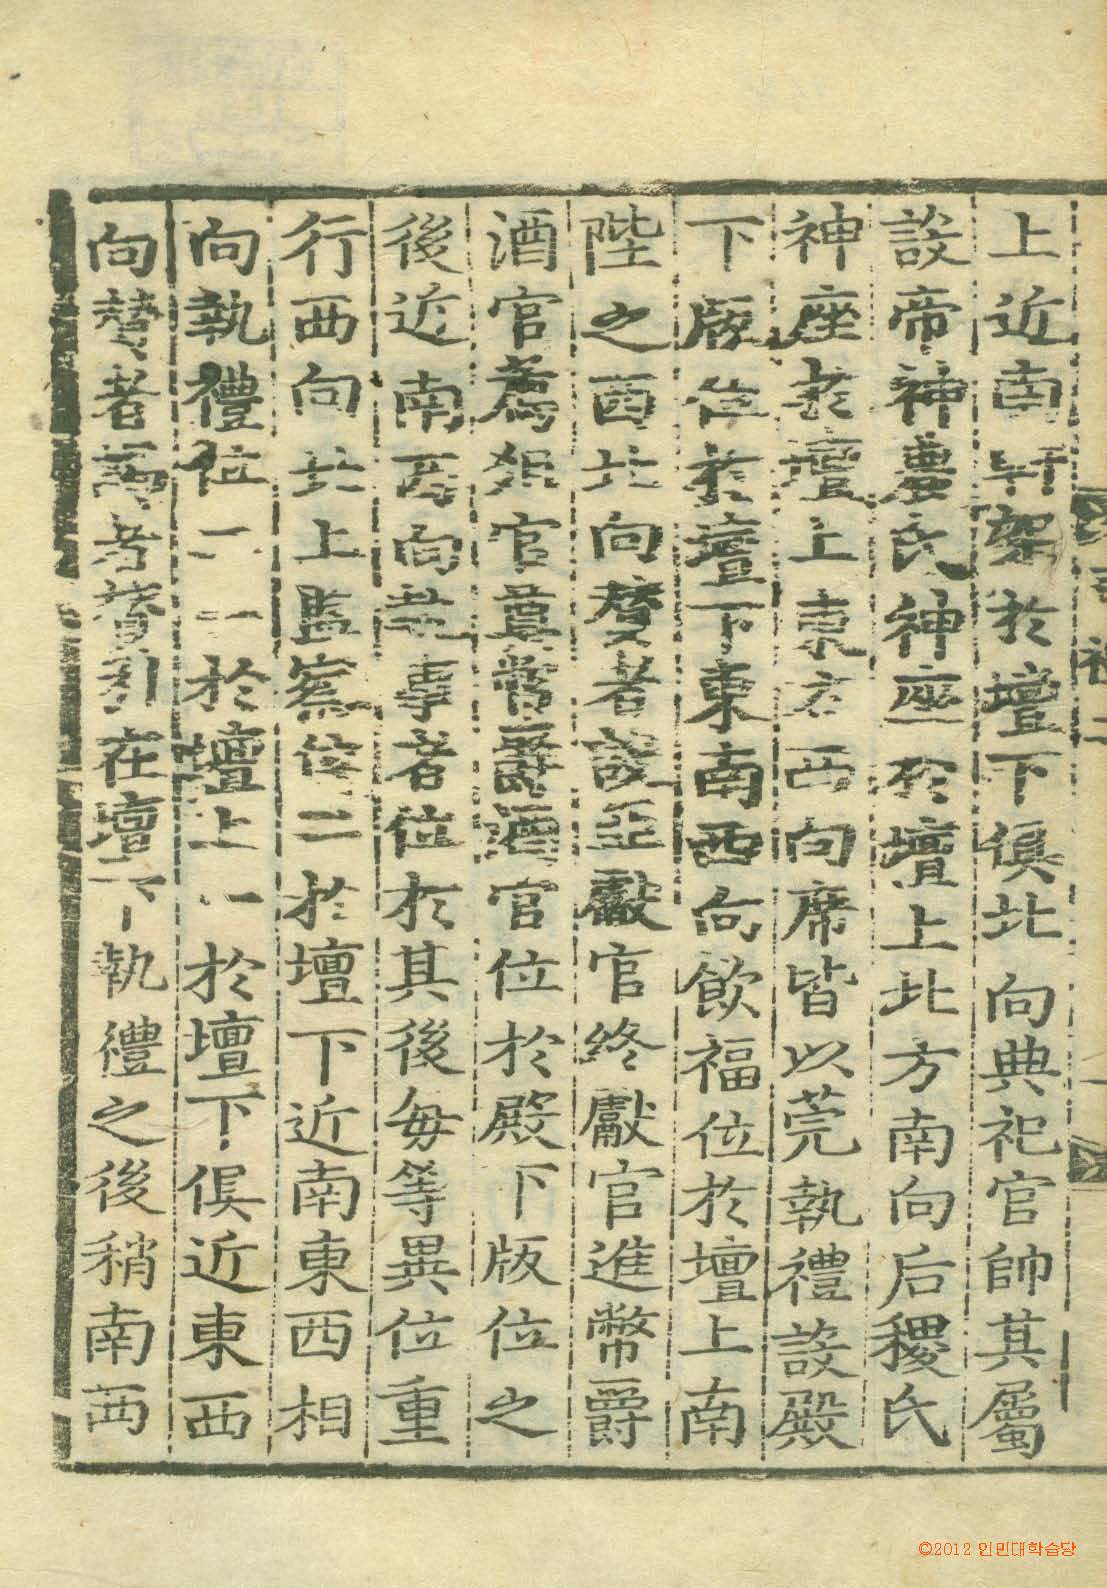 上近南軒架於壇下俱北向典祀官帥其屬
設帝神農氏神座於壇上北方南向后稷氏
神座於壇上東方西向席皆以莞執禮設殿
下版位於壇下東南西向飮福位於壇上南
陛之西北向贊者設亞獻官終獻官進幣爵
酒官薦俎官奠幣爵酒官位於殿下版位之
後近南西向執事者位於其後每等異位重
行西向北上監察位二於壇下近南東西相
向執禮位二一於壇上一於壇下俱近東西
向贊者謁者贊引在壇下執禮之後稍南西
©2012 인민대학습당